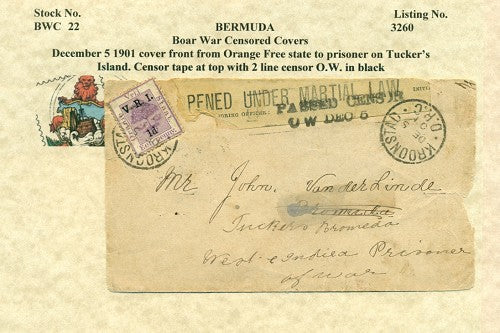 Stock No.
BERMUDA
Listing No.
BWC 22
Boar War Censored Covers
3260
December 5 1901 cover front from Orange Free state to prisoner on Tucker's
Island. Censor tape at top with 2 line censor O.W. in black
PENED UNDER MARTIAL LAW
PASSED CENSOR
O W DEC 5
V.R.I.
1d
KROONSTA
KROONSTAD
O.R.C.
Mr John. VanderLinde
Bromuda
Tuckers Bromeda
West-e Indiea Prisoner
of War